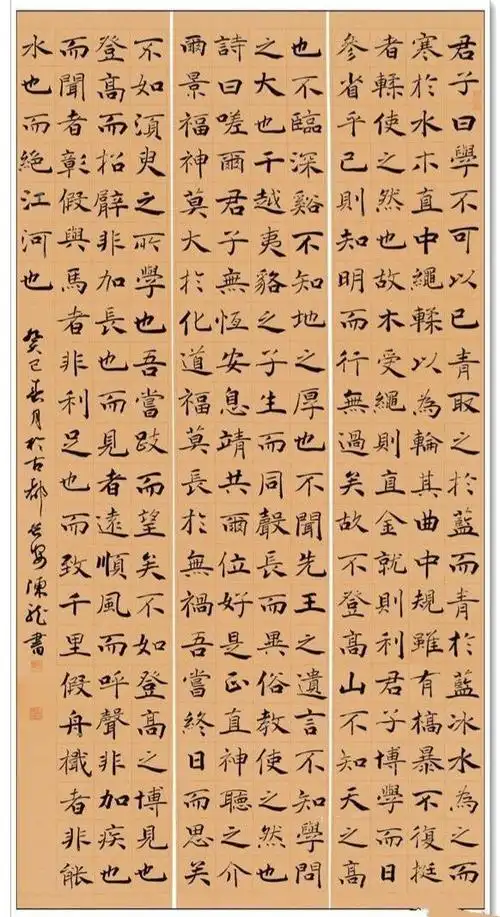 君子曰學不可以已青取之於藍而青於藍冰水為之而
寒於水木直中繩輮以為輪其曲中規雖有槁暴不復挺
者輮使之然也故木受繩則直金就則利君子博學而日
參省乎己則知明而行無過矣故不登高山不知天之高
也不臨深谿不知地之厚也不聞先王之遺言不知學問
之大也干越夷貉之子生而同聲長而異俗教使之然也
詩曰嗟爾君子無恆安息靖共爾位好是正直神聽之介
爾景福神莫大於化道福莫長於無禍吾嘗終日而思矣
不如須臾之所學也吾嘗跂而望矣不如登高之博見也
登高而招臂非加長也而見者遠順風而呼聲非加疾也
而聞者彰假輿馬者非利足也而致千里假舟檝者非能
水也而絕江河也
癸巳春月於古都長安陳龍書